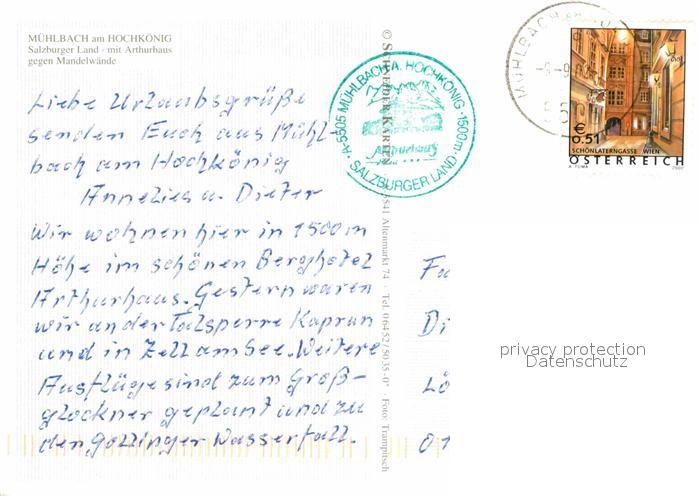 MÜHLBACH am HOCHKÖNIG
Salzburger Land · mit Arthurhaus
gegen Mandelwände
Liebe Urlaubsgrüße
senden Euch aus Mühl-
bach am Hochkönig
Annelies u. Dieter
Wir wohnen hier in 1500 m
Höhe im schönen Berghotel
Arthurhaus. Gestern waren
wir an der Talsperre Kaprun
und in Zell am See. Weitere
Ausflüge sind zum Groß-
glockner geplant und zu
den Gollinger Wasserfall.
A-5505 MÜHLBACH A. HOCHKÖNIG · 1500m ·
Arthurhaus
· SALZBURGER LAND ·
5541 Altenmarkt 74 · Tel. 06452/5035-0 · Foto: Trampitsch
MÜHLBACH am
€
0.51
SCHÖNLATERNGASSE WIEN
ÖSTERREICH
A. TUMA
2002
Fa
Di
Lö
01
privacy protection
Datenschutz